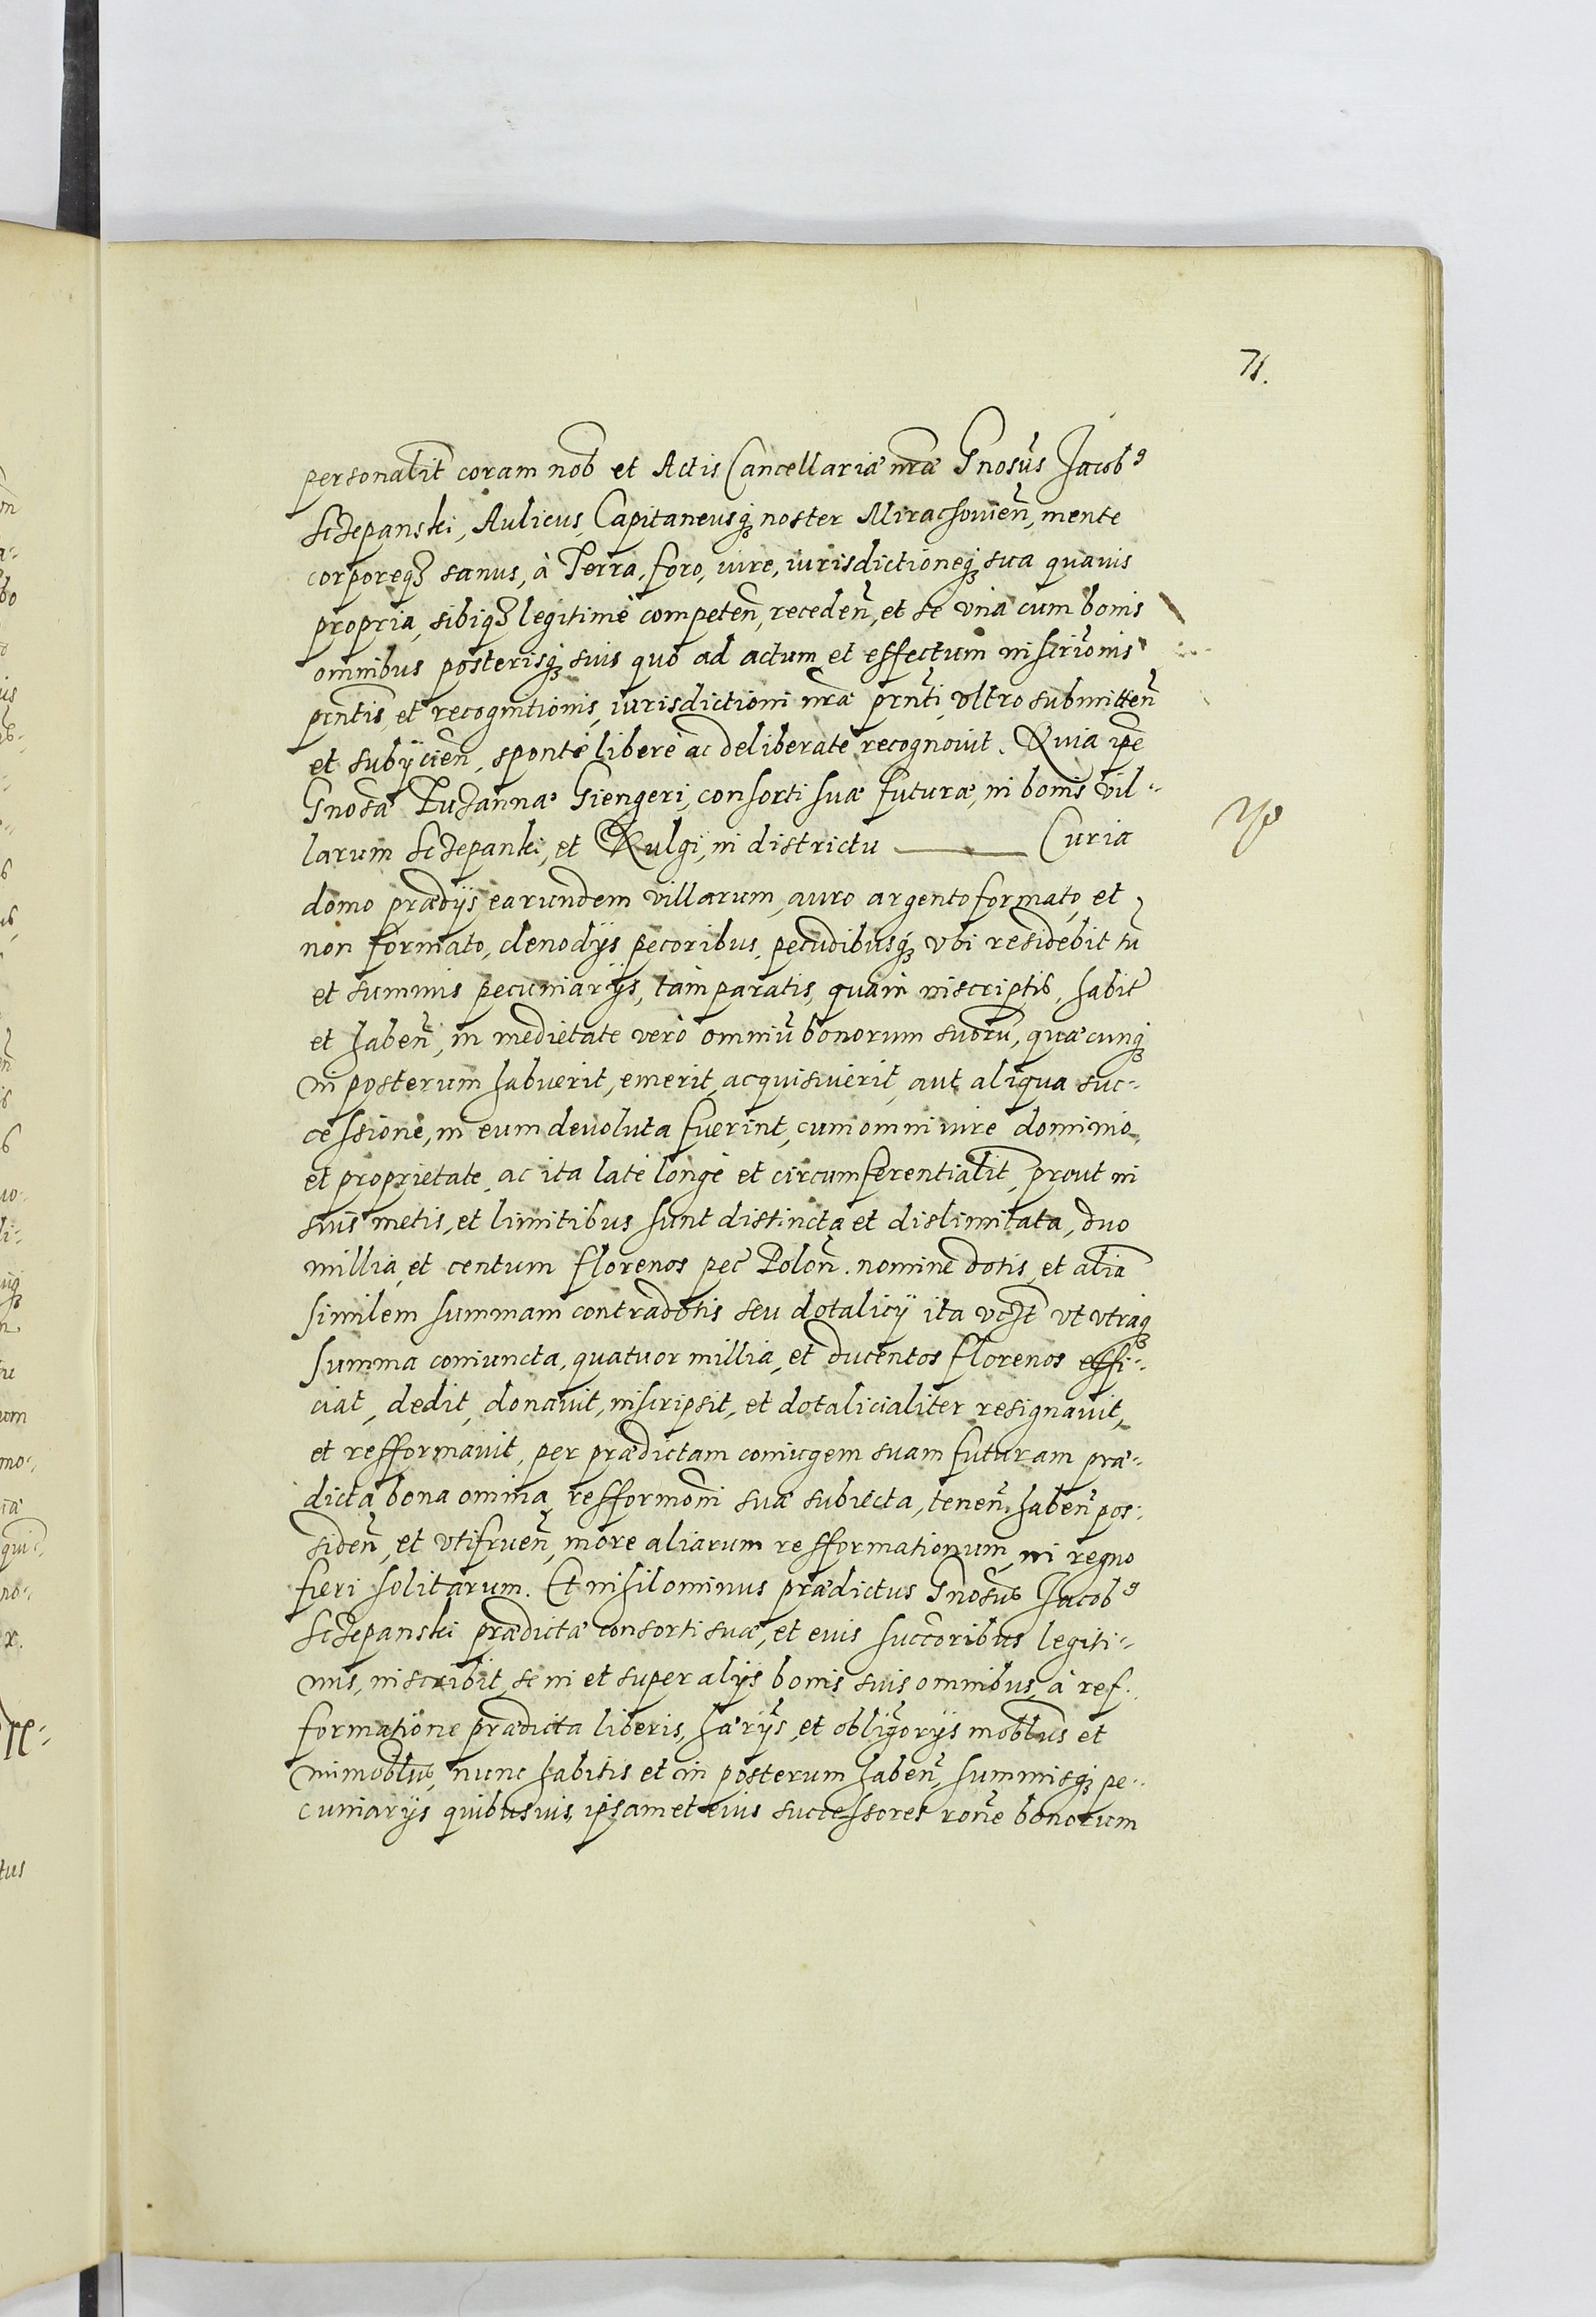 71.
personalit coram nob et Actis Cancellariæ nræ Gnosus Jacob9
Sczepanski, Aulicus, Capitaneusq; noster Mirachouien, mente
corporeq; sanus, à Terra, foro, iure, iurisdictioneq; sua quauis
propria, sibiq; legitimè competen, receden, et se vna cum bonis
omnibus posterisq; suis quo ad actum et effectum inscrionis
prntis, et recognitionis, iurisdictioni nræ prnti, vltro submitten
et subijcien, spontè liberè ac deliberatè recognouit. Quia ipse
Gnosæ Zuzannæ Giengeri, consorti suæ futuræ, in bonis vil-
larum Sczepanki, et Rulgi, in districtu ——— Curia
domo prædijs earundem villarum, auro argento formato, et
non formato, clenodijs pecoribus, pecudibusq; vbi residebit tu
et summis pecuniarijs, tam paratis, quam inscriptis, habit
et haben, in medietate verò omniu bonorum suoru, quæcunq;
in posterum habuerit, emerit, acquisiuerit, aut aliqua suc-
cessione, in eum deuoluta fuerint, cum omni iure dominio,
et proprietate, ac ita latè longè et circumferentialit, prout in
suis metis, et limitibus sunt distincta et dislimitata, duo
millia, et centum florenos pec Polon. nomine dotis, et alia
similem summam contradotis seu dotalicij ita vt vtraq;
summa coniuncta, quatuor millia, et ducentos florenos effi-
ciat, dedit, donauit, inscripsit, et dotalicialiter resignauit,
et refformauit, per prædictam coniugem suam futuram præ-
dicta bona omnia, refformoni suæ subiecta, tenen. haben pos-
siden, et vtifruen, more aliarum refformationum, in regno
fieri solitarum. Et nihilominus prædictus Gnosus Jacob9
Sczepanski prædictæ consorti suæ, et euis succoribus legiti-
mis, inscribit, se in et super alijs bonis suis omnibus, à ref-
formatione prædicta liberis, hærijs, et obligorijs moblbus et
immoblbus, nunc habitis et in posterum haben, summisq; pe-
cuniarijs quibusuis, ipsam et eius successores rone bonorum